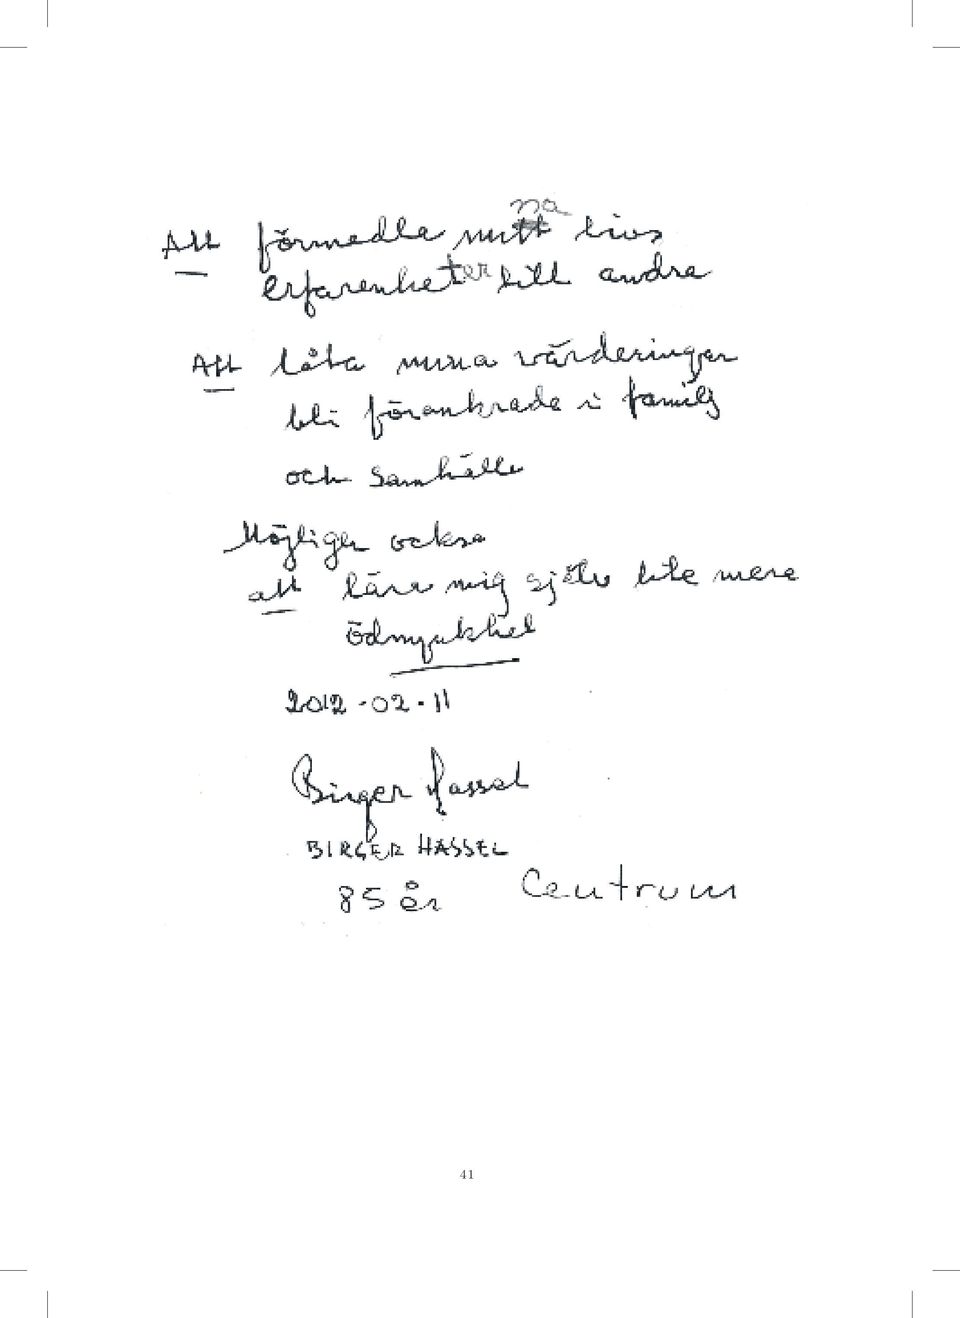 Att förmedla mina livs
erfarenheter till andra
Att låta mina värderingar
bli förankrade i familj
och samhälle
Möjligen också
att lära mig själv lite mere
ödmjukhet
2012-02-11
Birger Hassel
BIRGER HASSEL
85 år Centrum
41